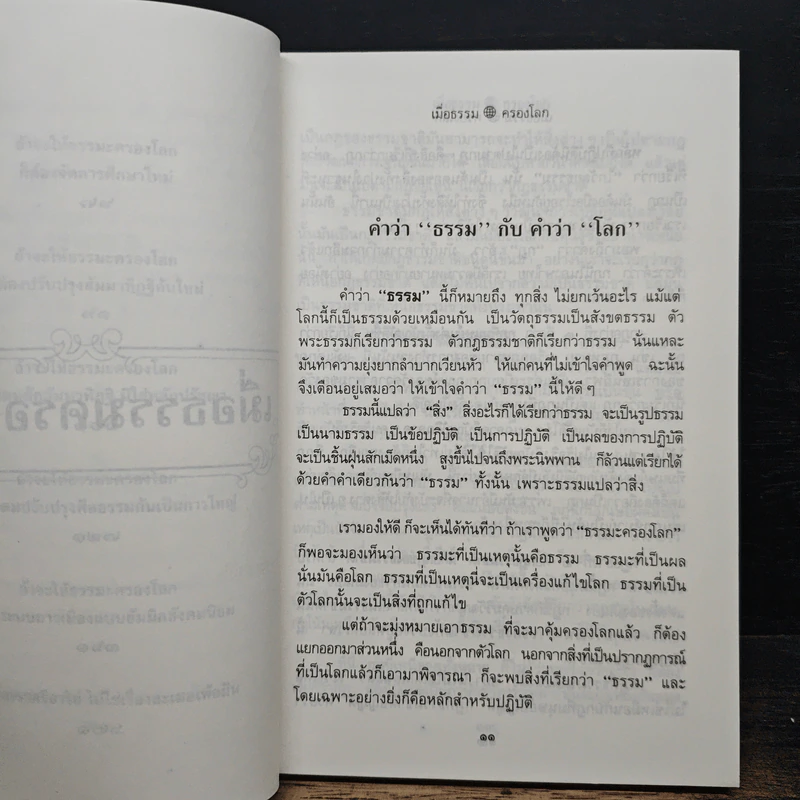 เมื่อธรรม ครองโลก
คำว่า “ธรรม” กับ คำว่า “โลก”
คำว่า “ธรรม” นี้ก็หมายถึง ทุกสิ่ง ไม่ยกเว้นอะไร แม้แต่
โลกนี้ก็เป็นธรรมด้วยเหมือนกัน เป็นวัตถุธรรมเป็นสังขตธรรม ตัว
พระธรรมก็เรียกว่าธรรม ตัวกฎธรรมชาติก็เรียกว่าธรรม นั่นแหละ
มันทำความยุ่งยากลำบากเวียนหัว ให้แก่คนที่ไม่เข้าใจคำพูด ฉะนั้น
จึงเตือนอยู่เสมอว่า ให้เข้าใจคำว่า “ธรรม” นี้ให้ดี ๆ
ธรรมนี้แปลว่า “สิ่ง” สิ่งอะไรก็ได้เรียกว่าธรรม จะเป็นรูปธรรม
เป็นนามธรรม เป็นข้อปฏิบัติ เป็นการปฏิบัติ เป็นผลของการปฏิบัติ
จะเป็นชิ้นฝุ่นสักเม็ดหนึ่ง สูงขึ้นไปจนถึงพระนิพพาน ก็ล้วนแต่เรียกได้
ด้วยคำคำเดียวกันว่า “ธรรม” ทั้งนั้น เพราะธรรมแปลว่าสิ่ง
เรามองให้ดี ก็จะเห็นได้ทันทีว่า ถ้าเราพูดว่า “ธรรมะครองโลก”
ก็พอจะมองเห็นว่า ธรรมะที่เป็นเหตุนั้นคือธรรม ธรรมะที่เป็นผล
นั่นมันคือโลก ธรรมที่เป็นเหตุนี่จะเป็นเครื่องแก้ไขโลก ธรรมที่เป็น
ตัวโลกนั้นจะเป็นสิ่งที่ถูกแก้ไข
แต่ถ้าจะมุ่งหมายเอาธรรม ที่จะมาคุ้มครองโลกแล้ว ก็ต้อง
แยกออกมาส่วนหนึ่ง คือนอกจากตัวโลก นอกจากสิ่งที่เป็นปรากฏการณ์
ที่เป็นโลกแล้วก็เอามาพิจารณา ก็จะพบสิ่งที่เรียกว่า “ธรรม” และ
โดยเฉพาะอย่างยิ่งก็คือหลักสำหรับปฏิบัติ
๑๑